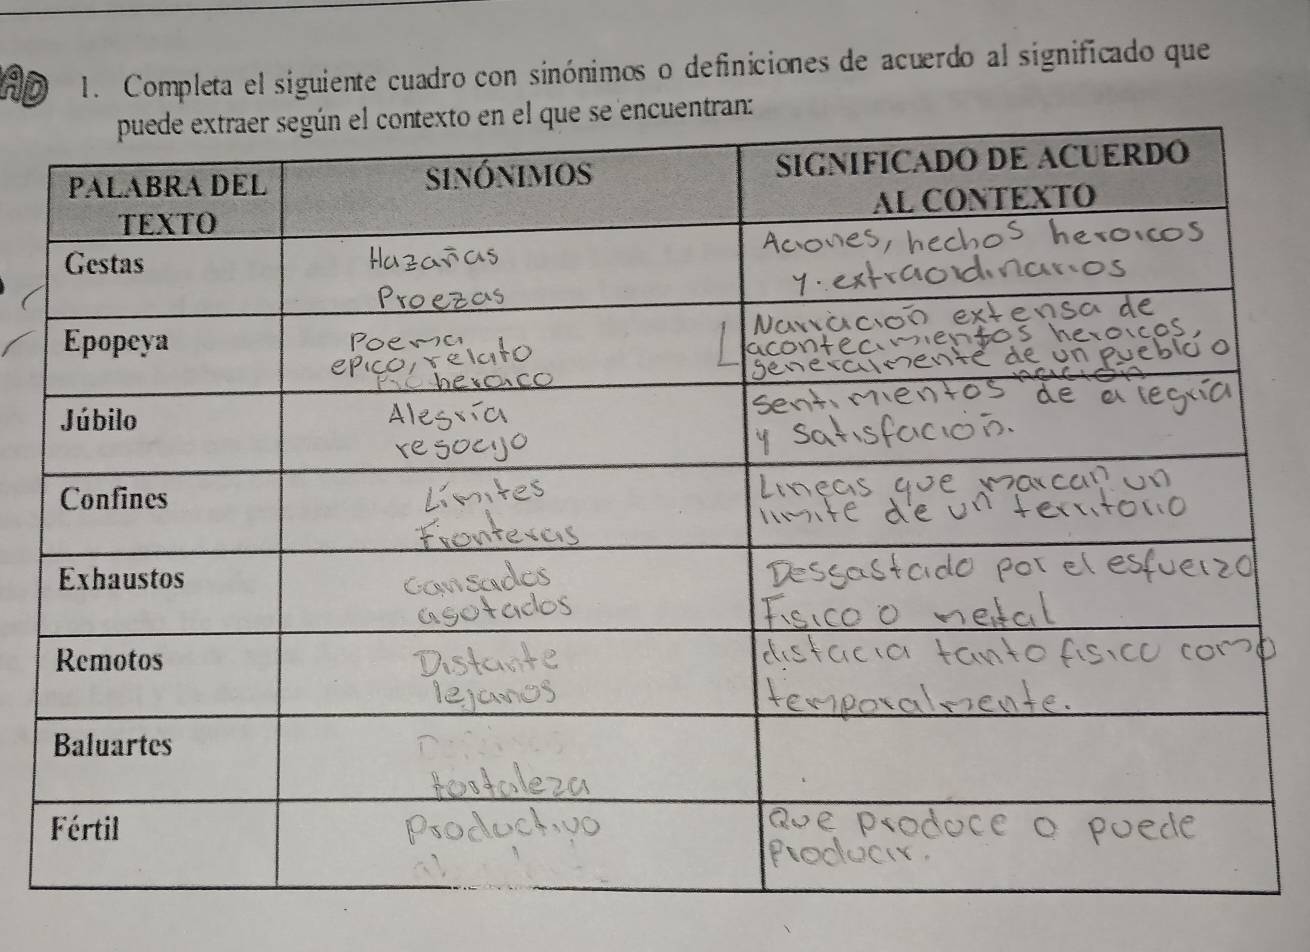 AD 1. Completa el siguiente cuadro con sinónimos o definiciones de acuerdo al significado que
puede extraer según el contexto en el que se encuentran:
PALABRA DEL
TEXTO
SINÓNIMOS
SIGNIFICADO DE ACUERDO
AL CONTEXTO
Gestas
Hazañas
Proezas
Aciones, hechos heroicos
y. extraordinarios
Epopeya
Poema
epico, relato
heroico
Narración extensa de
acontecimientos heroicos,
generalmente de un pueblo o
nación
Júbilo
Alegría
regocijo
sentimientos de alegría
y satisfación.
Confines
Límites
Fronteras
Lineas que marcan un
limite de un territorio
Exhaustos
cansados
agotados
Desgastado por el esfuerzo
Fisico o metal
Remotos
Distante
lejanos
distacia tanto fisico como
temporalmente.
Baluartes
fortaleza
Fértil
Productivo
Que produce o puede
Producir.